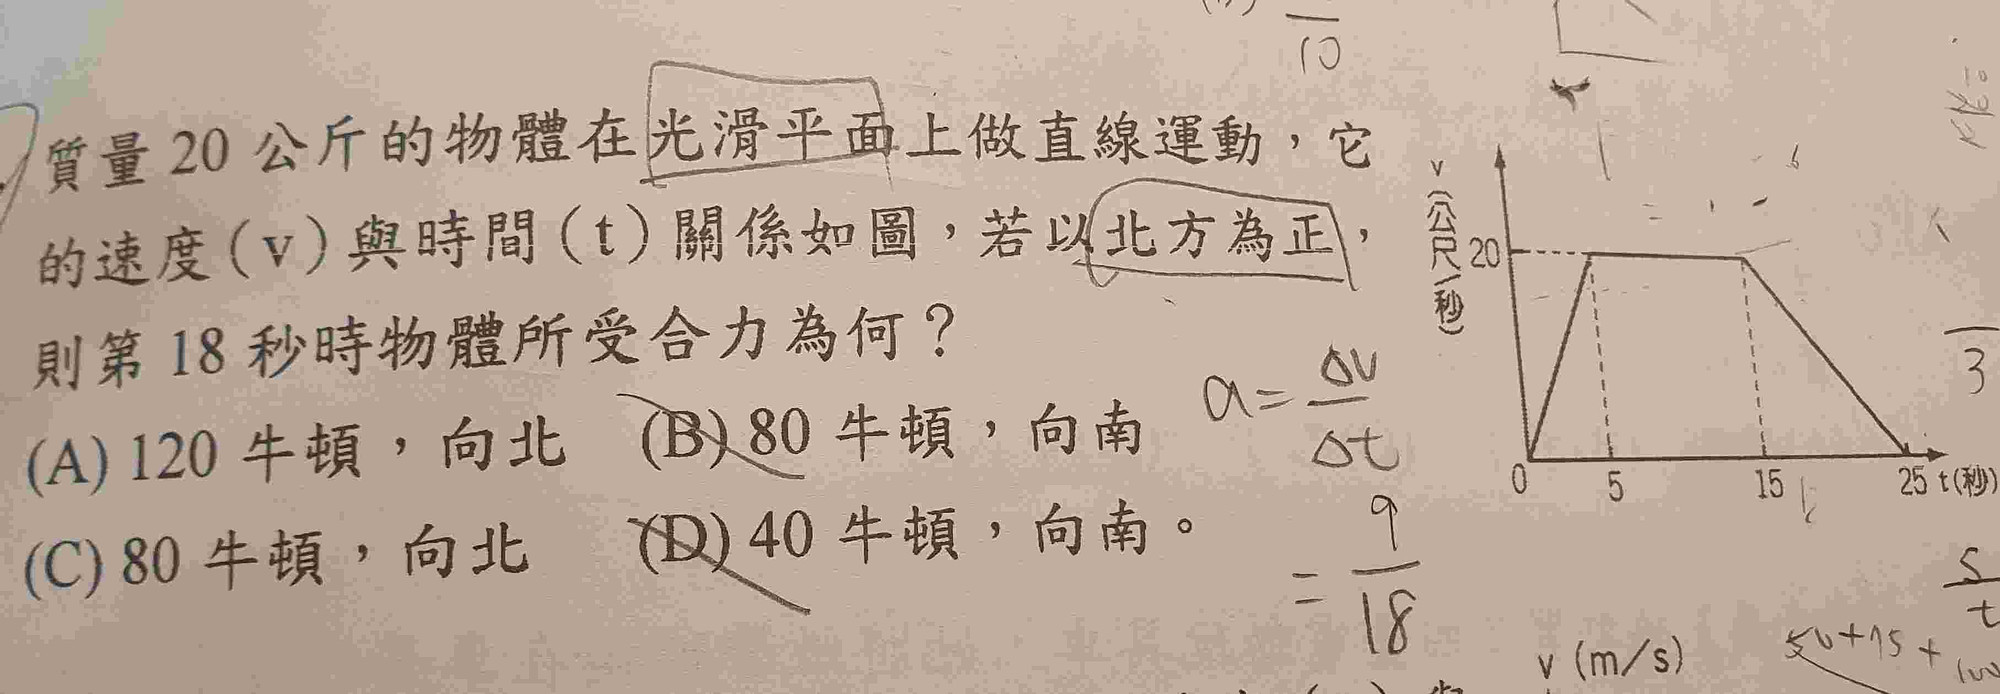 10
質量 20 公斤的物體在光滑平面上做直線運動，它
的速度(v)與時間(t)關係如圖，若以北方為正，
則第 18 秒時物體所受合力為何？
(A) 120 牛頓，向北 (B) 80 牛頓，向南
(C) 80 牛頓，向北 (D) 40 牛頓，向南。
a = Δv / Δt
= 9 / 18
v(公尺/秒)
20
0 5 15 25 t(秒)
3
S / t
v (m/s)